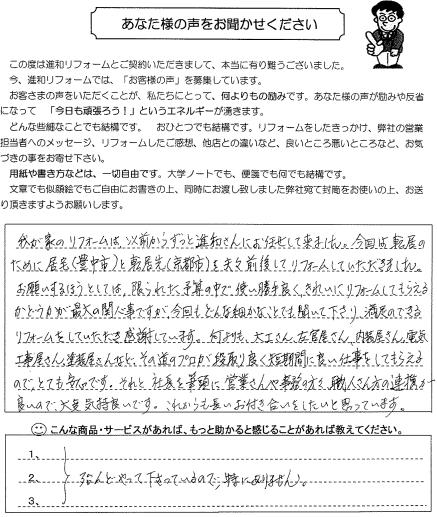 あなた様の声をお聞かせください
この度は進和リフォームとご契約いただきまして、本当に有り難うございました。
今、進和リフォームでは、「お客様の声」を募集しています。
お客さまの声をいただくことが、私たちにとって、何よりもの励みです。あなた様の声が励みや反省
になって　「今日も頑張ろう！」というエネルギーが湧きます。
どんな些細なことでも結構です。　おひとつでも結構です。リフォームをしたきっかけ、弊社の営業
担当者へのメッセージ、リフォームしたご感想、他店との違いなど、良いところ悪いところなど、お気
づきの事をお寄せ下さい。
用紙や書き方などは、一切自由です。大学ノートでも、便箋でも何でも結構です。
文章でも似顔絵でもご自由にお書きの上、同時にお渡し致しました弊社宛て封筒をお使いの上、お送
り頂きますようお願いします。
我が家のリフォームは、以前からずっと進和さんにお任せして来ました。今回は転居の
ために居宅(豊中市)と転居先(京都市)を 前後してリフォームしていただきました。
お願いするほうとしては、限られた予算の中で、使い勝手良く、きれいにリフォームしてもらえる
かどうかが最大の関心事ですが、今回もどんな細かなことも聞いて下さり、満足のできる
リフォームをしていただき感謝しています。何よりも、大工さん、左官屋さん、内装屋さん、電気
工事屋さん、塗装屋さんなど、その道のプロが段取り良く短期間に良い仕事をしてもらえる
ので、とても安心です。それと 社長を筆頭に営業さんや事務の方、職人さん方の連携が
良いので、大変気持良いです。これからも長いお付き合いをしたいと思っています。
こんな商品・サービスがあれば、もっと助かると感じることがあれば教えてください。
1、
2、殆んどやって下さっているので、特にありません。
3、